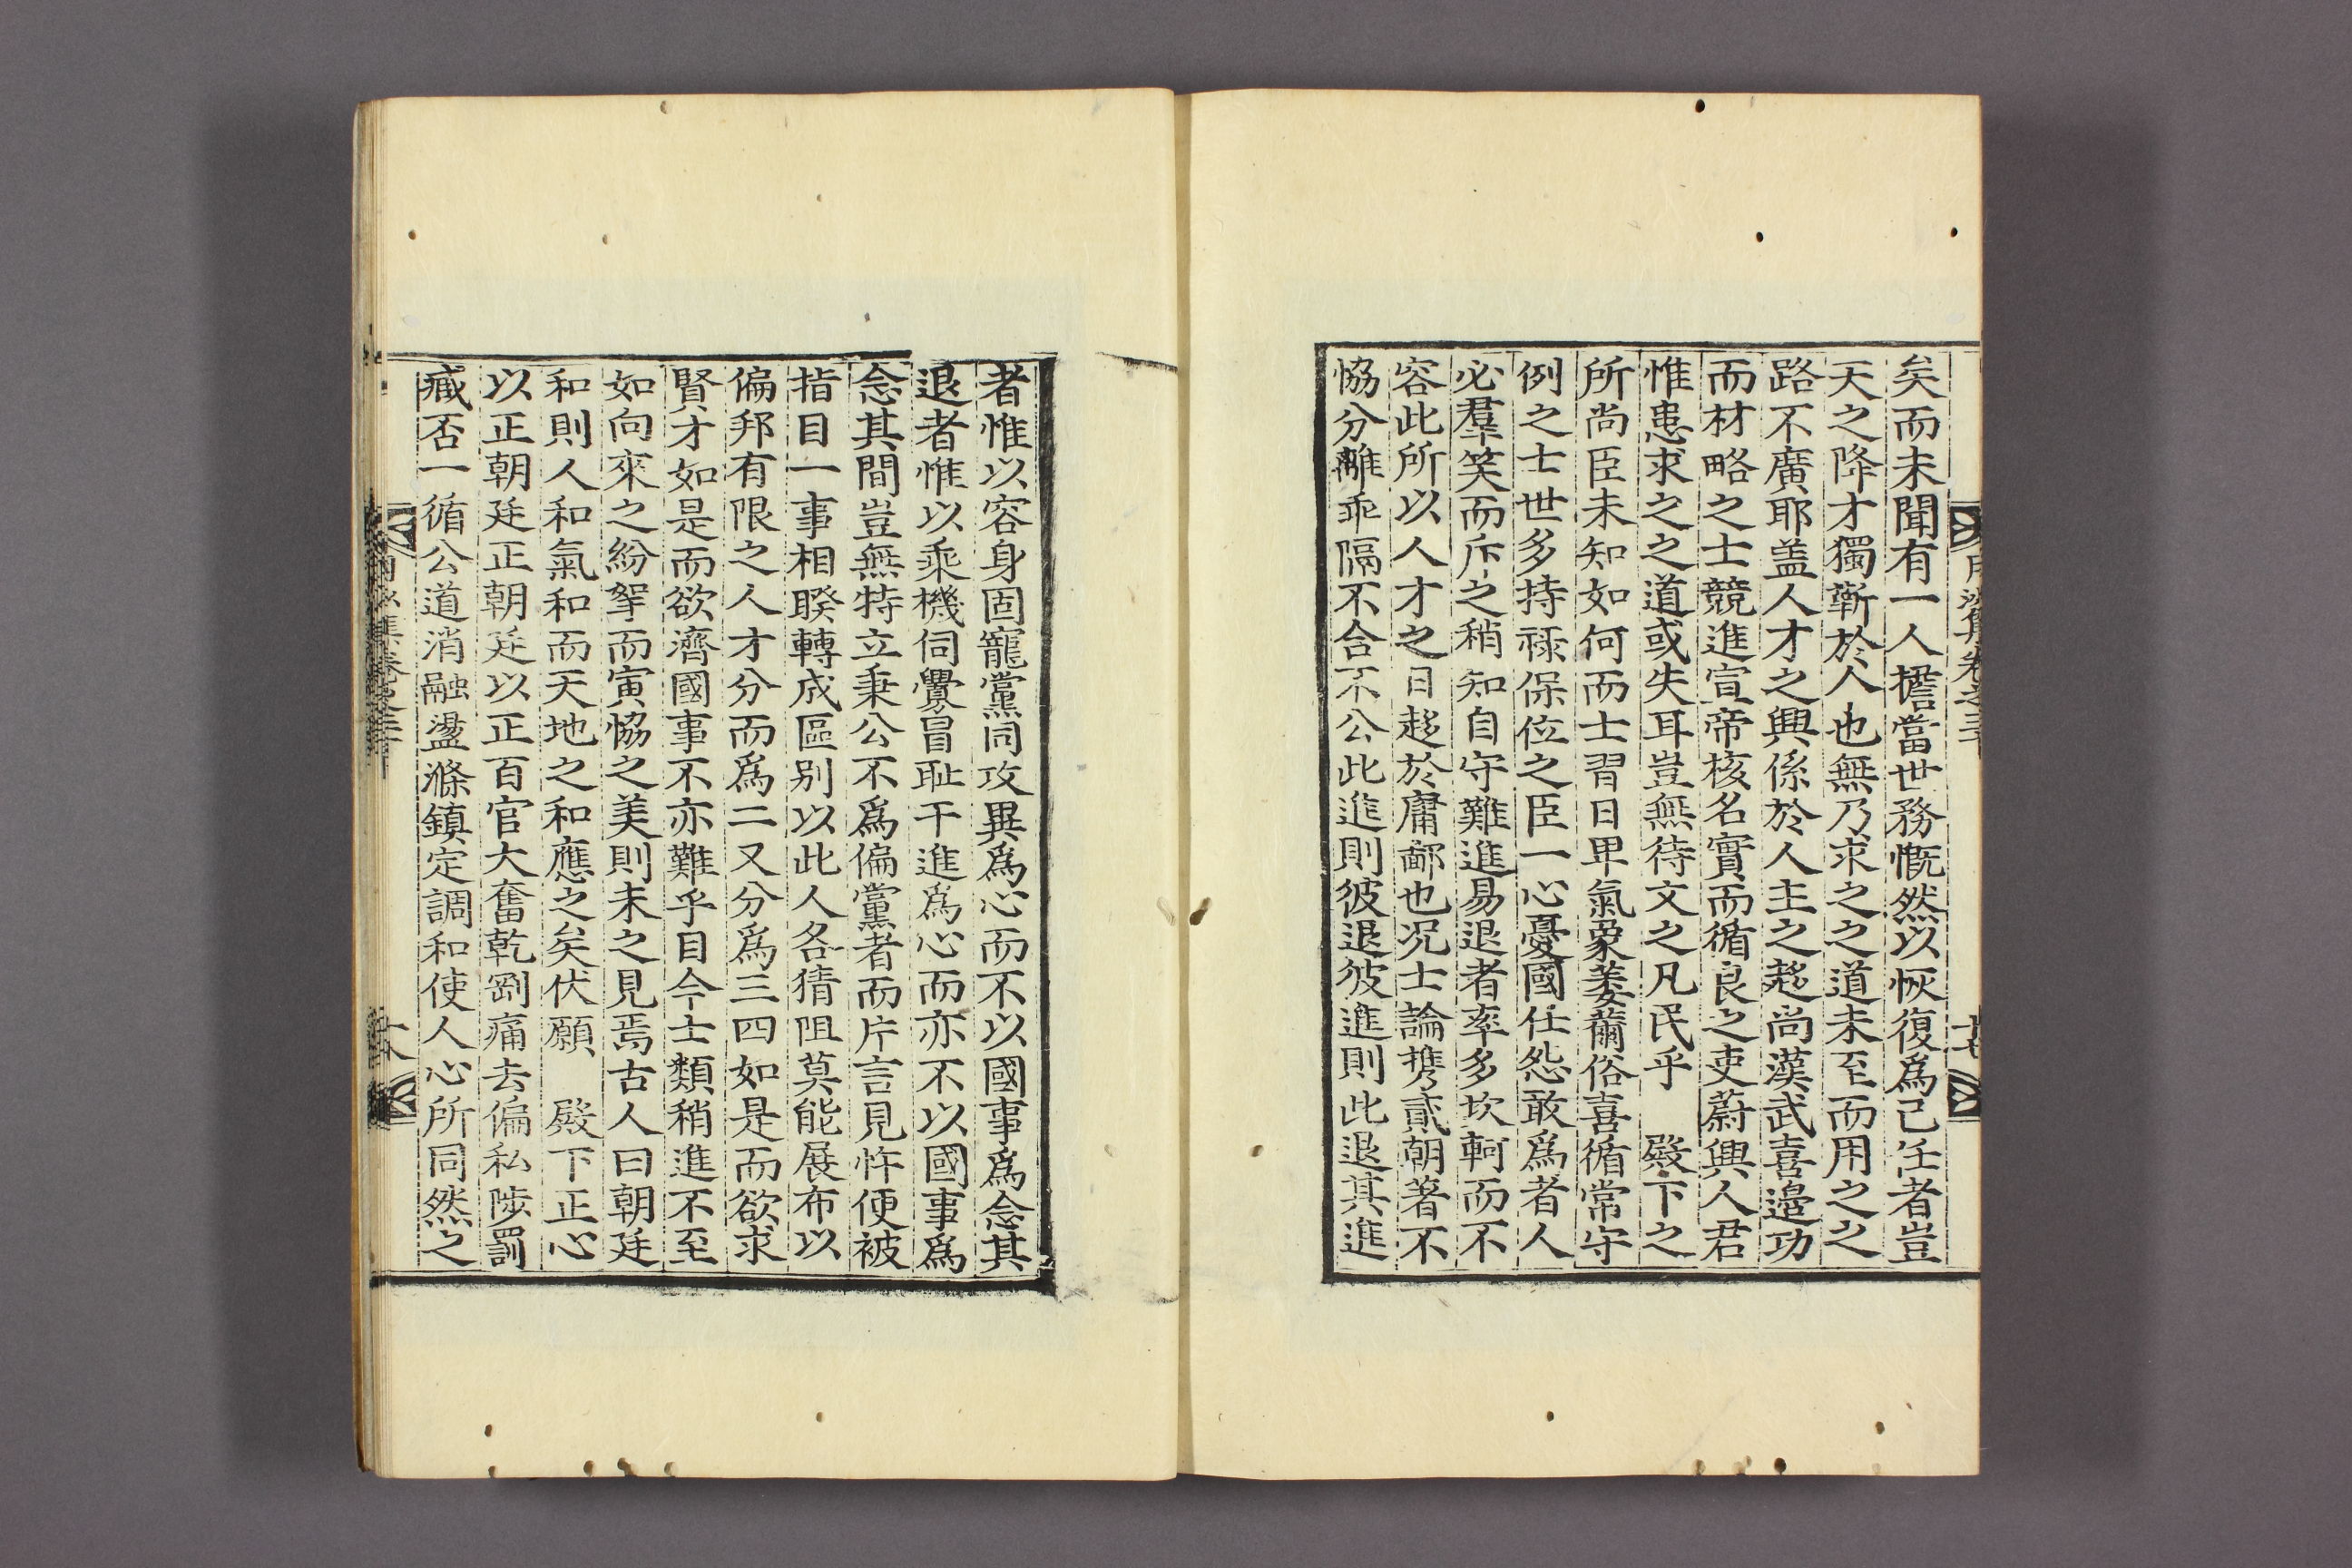 矣而未聞有一人擔當世務慨然以恢復爲己任者豈
天之降才獨靳於人也無乃求之之道未至而用之之
路不廣耶盖人才之興係於人主之趍尚漢武喜邊功
而材略之士競進宣帝核名實而循良之吏蔚興人君
惟患求之之道或失耳豈無待文之凡民乎　殿下之
所尚臣未知如何而士習日卑氣象萎薾俗喜循常守
例之士世多持祿保位之臣一心憂國任怨敢爲者人
必羣笑而斥之稍知自守難進易退者率多坎軻而不
容此所以人才之日趍於庸鄙也况士論携貳朝著不
恊分離乖隔不合不公此進則彼退彼進則此退其進
者惟以容身固寵黨同攻異爲心而不以國事爲念其
退者惟以乘機伺釁冒耻干進爲心而亦不以國事爲
念其間豈無特立秉公不爲偏黨者而片言見忤便被
指目一事相睽轉成區别以此人各猜阻莫能展布以
偏邦有限之人才分而爲二又分爲三四如是而欲求
賢才如是而欲濟國事不亦難乎目今士類稍進不至
如向來之紛挐而寅恊之美則未之見焉古人曰朝廷
和則人和氣和而天地之和應之矣伏願　殿下正心
以正朝廷正朝廷以正百官大奮乾剛痛去偏私陟罰
臧否一循公道消融盪滌鎮定調和使人心所同然之